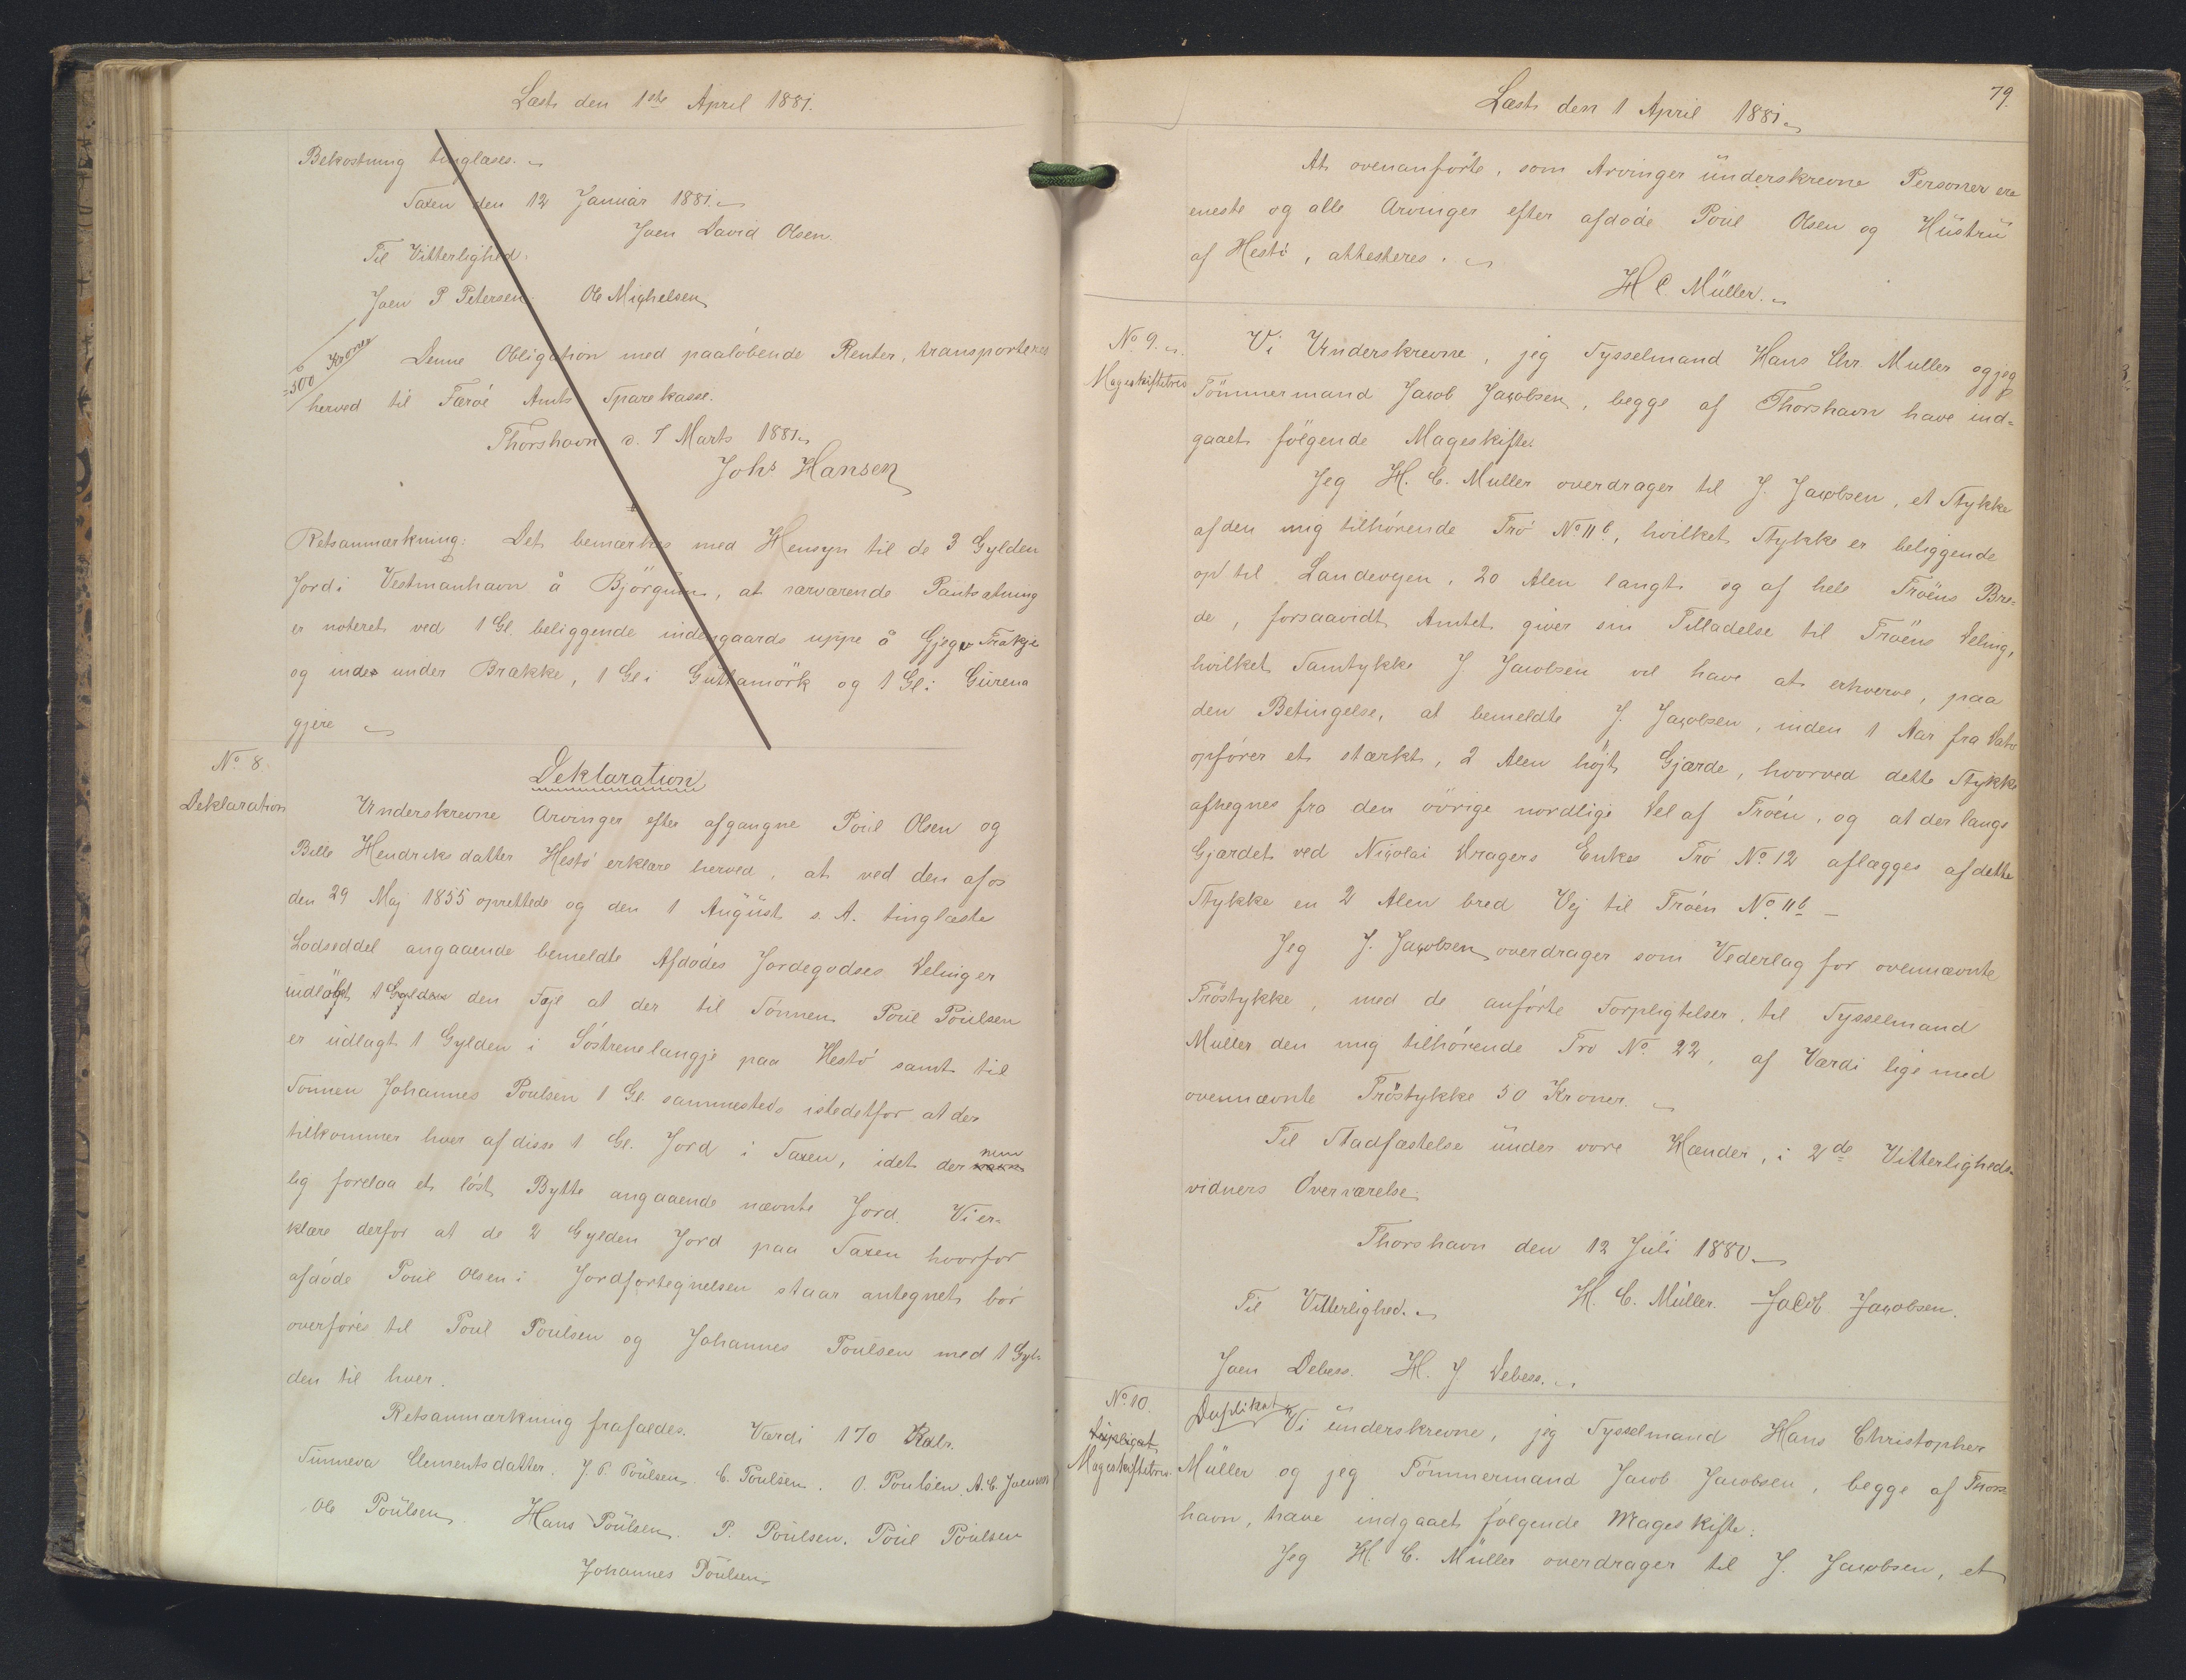 Læst den 1ste April 1881.
Bekostning tinglæses.
Saxen den 12 Januar 1881.
Joen David Olsen.
Til Vitterlighed.
Joen P. Petersen. Ole Michelsen
500 Kroner
Denne Obligation med paaløbende Renter, transporteres
herved til Færøe Amts Sparekasse.
Thorshavn d. 7 Marts 1881.
Johs. Hansen
Retsanmærkning: Det bemærkes med Hensyn til de 3 Gylden
Jord i Vestmanhavn å Bjørgum, at nærværende Pantsætning
er noteret ved 1 Gl. beliggende indengaards uppe å Gjegv Trøkje
og inde under Brække, 1 Gl i Guttamørk og 1 Gl i Gurena
gjere
No 8.
Deklaration
Deklaration
Underskrevne Arvinger efter afgangne Poul Olsen og
Bille Hendriksdatter Hestø erklære herved, at ved den af os
den 29 Maj 1855 oprettede og den 1 August s. A. tinglæste
Lodseddel angaaende bemeldte Afdødes Jordegodses Deling er
indløbet den Fejl at der til Sønnen Poul Poulsen
er udlagt 1 Gylden i Søstrenelangje paa Hestø samt til
Sønnen Johannes Poulsen 1 Gl. sammesteds istedetfor at der
tilkommer hver af disse 1 Gl. Jord i Saxen, idet der nem
lig forelaa et løst Bytte angaaende nævnte Jord. Vi er-
klære derfor at de 2 Gylden Jord paa Saxen hvorfor
afdøde Poul Olsen i Jordfortegnelsen staar antegnet bør
overføres til Poul Poulsen og Johannes Poulsen med 1 Gyl-
den til hver.
Retsanmærkning frafaldes. Værdi 170 Rdlr.
Sunneva Clementsdatter. J. P. Poulsen. C. Poulsen. O. Poulsen. A. C. Joensen
Ole Poulsen. Hans Poulsen. P. Poulsen. Poul Poulsen
Johannes Poulsen
79.
Læst den 1 April 1881.
At ovenanførte, som Arvinger underskrevne Personer ere
eneste og alle Arvinger efter afdøde Poul Olsen og Hustru
af Hestø, attesteres.
H C. Müller.
No 9.
Mageskiftebrev
Vi Underskrevne, jeg Sysselmand Hans Chr. Muller og jeg
Tömmermand Jacob Jacobsen, begge af Thorshavn have ind=
gaaet følgende Mageskifte.
Jeg H. C. Muller overdrager til J. Jacobsen, et Stykke
af den mig tilhørende Trø No 11 b, hvilket Stykke er beliggende
op til Landevejen, 20 Alen langt og af hele Trøens Bre-
de, forsaavidt Amtet giver sin Tilladelse til Trøens Deling,
hvilket Samtykke J. Jacobsen vil have at erhverve, paa
den Betingelse, at bemeldte J. Jacobsen, inden 1 Aar fra Dato
opfører et stærkt, 2 Alen højt Gjærde, hvorved dette Stykke
afhegnes fra den øvrige nordlige Del af Trøen, og at der langs
Gjærdet ved Nicolai Dragers Enkes Trø No 12 aflægges af dette
Stykke en 2 Alen bred Vej til Trøen No 11 b
Jeg J. Jacobsen overdrager som Vederlag for ovennævnte
Trøstykke, med de anførte Forpligtelser, til Sysselmand
Müller den mig tilhørende Trø No 22, af Værdi lige med
ovennævnte Trøstykke 50 Kroner
Til Stadfæstelse under vore Hænder, i 2de Vitterligheds-
vidners Overværelse.
Thorshavn den 12 Juli 1880
H. C. Müller. Jacob Jacobsen.
Til Vitterlighed.
Joen Debess. H. J. Debess.
No 10.
Duplicat
Mageskiftebrev
Duplikat
Vi underskrevne, jeg Sysselmand Hans Christopher
Müller og jeg Tömmermand Jacob Jacobsen, begge af Thors-
havn, have indgaaet følgende Mageskifte:
Jeg H. C. Müller overdrager til J. Jacobsen, et